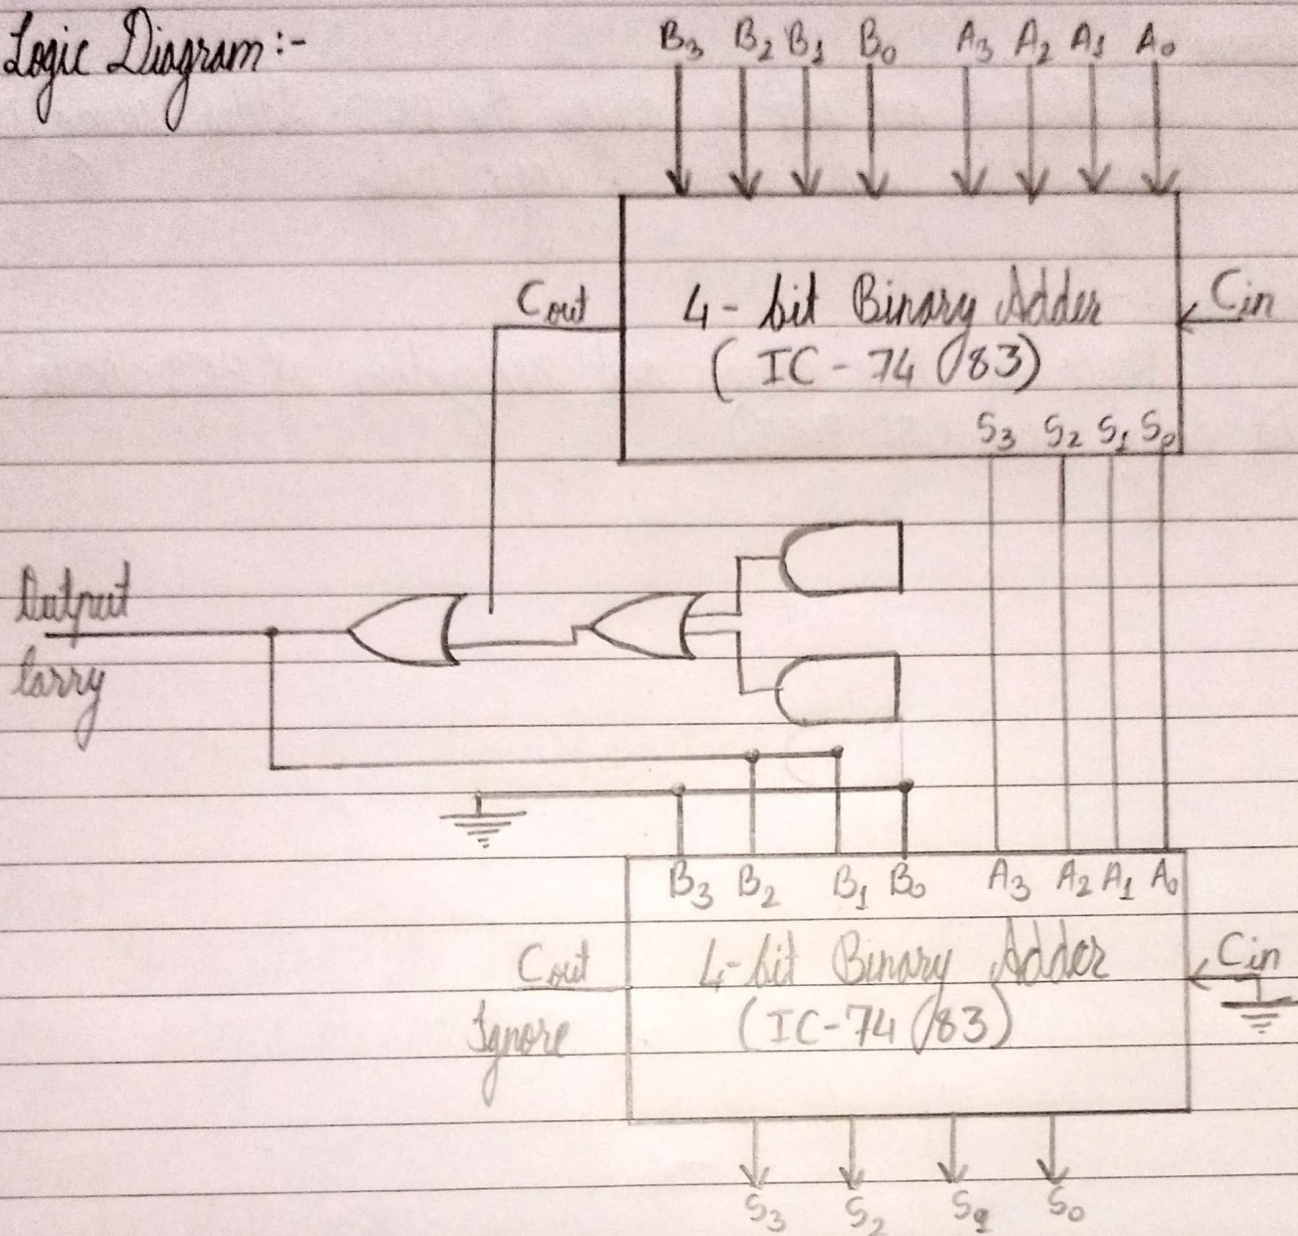 Logic Diagram :-
B3 B2 B1 B0 A3 A2 A1 A0
Cout
4-bit Binary Adder
Cin
(IC-74083)
S3 S2 S1 S0
Output
Carry
B3 B2 B1 B0 A3 A2 A1 A0
Cout
4-bit Binary Adder
Cin
Ignore
(IC-74083)
S3 S2 S1 S0